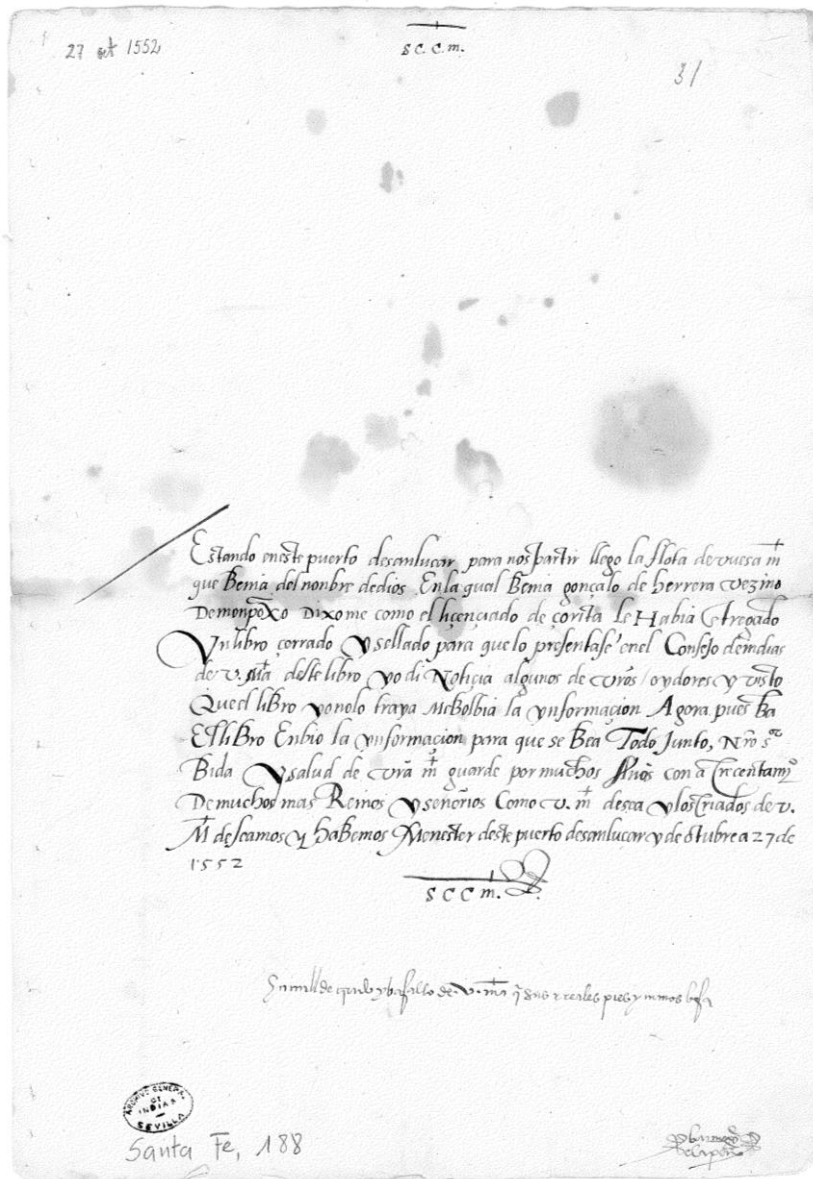 27 oct 1552
S. C. C. M.
31
Estando eneste puerto desanlucar para nos partir llego la flota de vuesa m
que Benia del nonbre dedios Enla qual Benia gonçalo de herrera vezino
De monpoxo Dixome como el liçenciado de çorita Le Habia Etregado
Vn libro çerrado y sellado para que lo presentase enel Consejo deindias
de v. ma deste libro yo di Notiçia algunos de vros oydores y visto
Que el liBro yo nolo traya Me Bolbia la ynformaçion Agora pues Ba
El liBro Enbio la ynformaçion para que se Bea Todo Junto, Nro sor
Bida y salud de vra m guarde por muchos Años con acreçentamio
De muchos mas Reinos y señorios Como v. m desea y los criados de v.
M deseamos y haBemos Menester deste puerto desanlucar y de otubre a 27 de
1552
S C C M.
Humill de criado y basallo de v. ma q sus reales pies y manos besa
ARCHIVO GENERAL
DE
INDIAS
SEVILLA
Santa Fe, 188